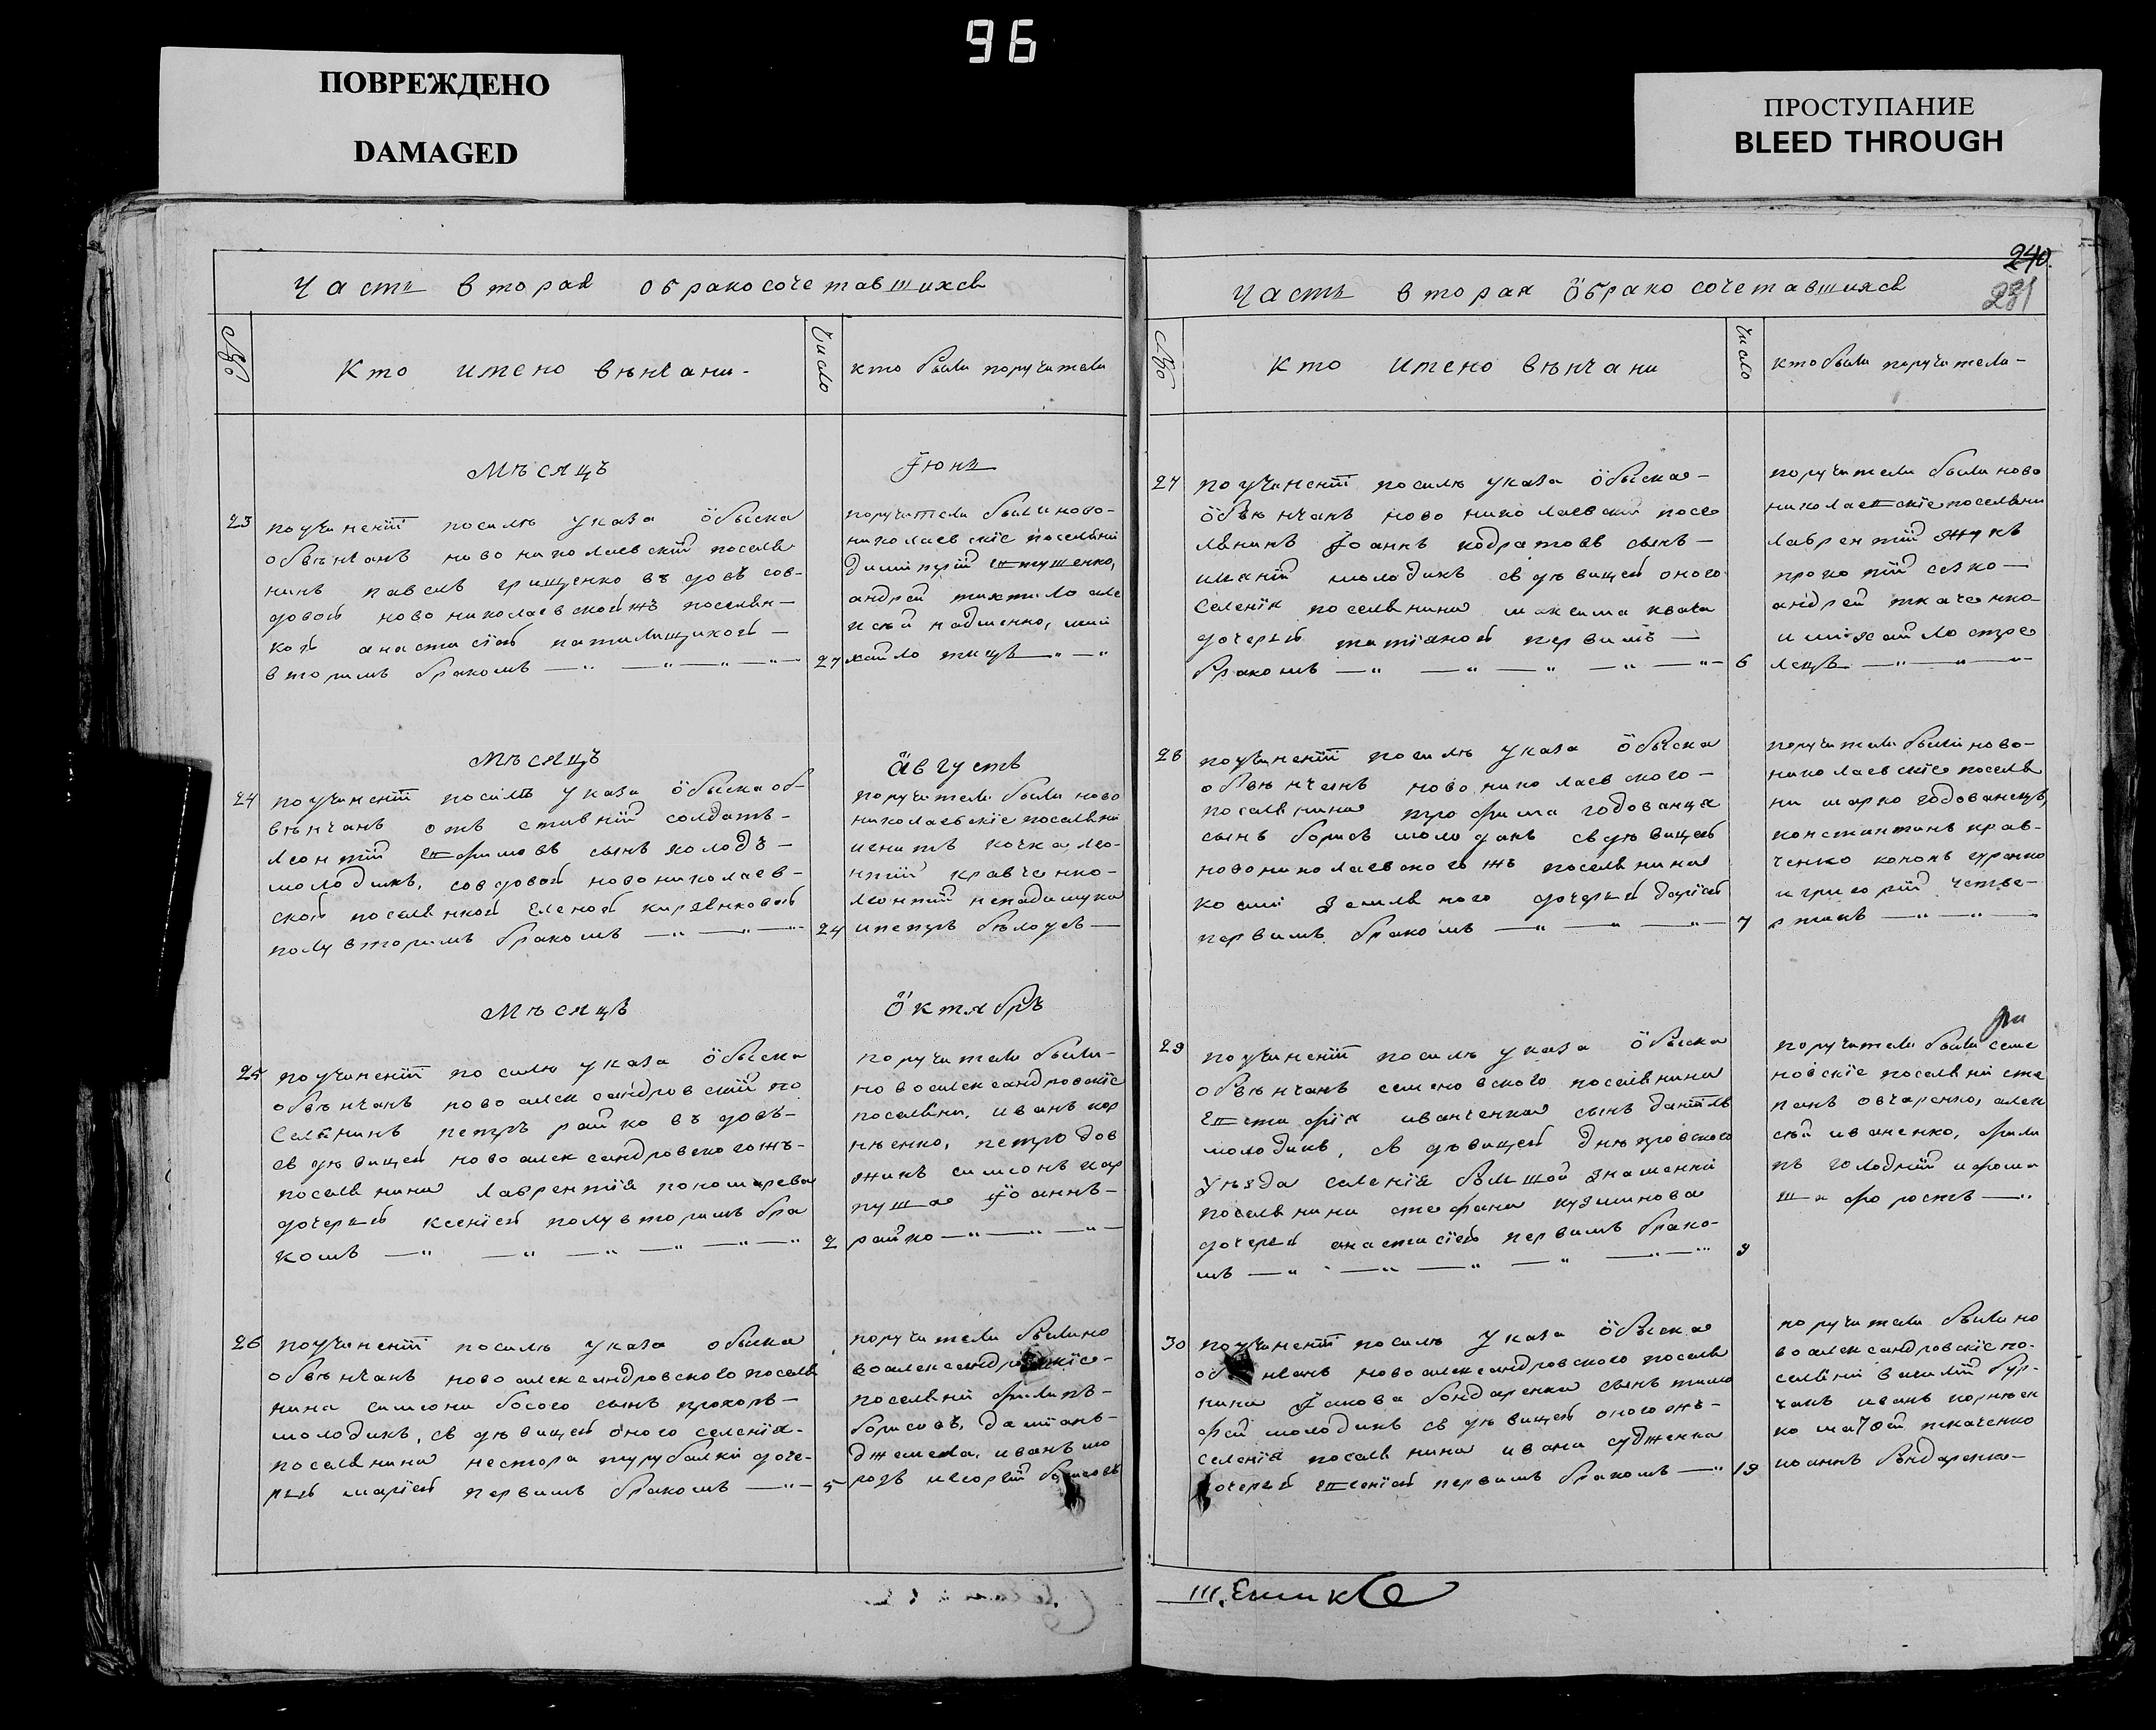 96
ПОВРЕЖДЕНО
DAMAGED
ПРОСТУПАНИЕ
BLEED THROUGH
Часть вторая о бракосочетавшихся
№
Кто имено вѣнчани
Число
кто были поручители
Мѣсяцъ
Іюнь
23
поучиненіи посилѣ указа обыска
обвѣнчанъ ново николаевскій поселя
нинъ павелъ грищенко въдовъ сов
довой ново николаевскойжъ поселян
кой анастасіей
вторимъ бракомъ
27
поручители были ново
николаевскіе поселяни
димитрій
андрей тихтило але
ксѣй надшенко, ми
хайло тицъ
Мѣсяцъ
Августъ
24
поучиненіи посилѣ указа обыска об
вѣнчанъ отъ ставній солдатъ
леонтій сынъ холодъ
молодикъ, совдовой новониколаев
ской поселянкой Еленой
полувторимъ бракомъ
24
поручители были ново
николаевскіе поселяни
игнатъ кочка лео
нтій кравченко
леонтій
ипетръ бѣлоусъ
Мѣсяцъ
Октябръ
25
поучиненіи посилѣ указа обыска
обвѣнчанъ новоалександровскій по
селянинъ петръ райко въдовъ
съ дѣвицей новоалександровскогожъ
поселянина лаврентія пономарева
дочерей ксеніей полувторимъ бра
комъ
2
поручители были
новоалександровскіе
поселяни, иванъ кор
нѣенко, петро дов
жикъ симеонъ кар
пуша Іоаннъ
райко
26
поучиненіи посилѣ указа обыска
обвѣнчанъ новоалександровского поселя
нина симеона босого сынъ прохоръ
молодикъ, съ дѣвицей оного селенія
поселянина нестора турубалки доче
рей маріей первимъ бракомъ
5
поручители были но
воалександровскіе
поселяни филипъ
борисовъ, даміанъ
джемела, иванъ мо
розъ игоргій борисовъ
240
231
Часть вторая о бракосочетавшихся
№
Кто имено вѣнчани
Число
кто были поручители
27
поучиненіи посилѣ указа обыска
обвѣнчанъ ново николаевскій посе
лянинъ Іоаннъ кодратовъ сынъ
молодикъ съ дѣвицей оного
селенія поселянина максима квача
дочерей татіяной первимъ
бракомъ
6
поручители были ново
николаевскіе поселяни
лаврентій жукъ
прокопій сѣзко
андрей ткаченко
и михайло стре
лецъ
28
поучиненіи посилѣ указа обыска
обвѣнчанъ новониколаевского
поселянина трофима годованца
сынъ борисъ молодикъ съ дѣвицей
новониколаевскогожъ поселянина
косми дочерей даріей
первимъ бракомъ
7
поручители были ново
николаевскіе поселя
ни марко годованецъ,
константинъ крав
ченко кононъ
и григорій четве
ртакъ
29
поучиненіи посилѣ указа обыска
обвѣнчанъ семеновского поселянина
Евстафія иванченка сынъ даніилъ
молодикъ, съ дѣвицей днѣпровского
уѣзда селенія большой знаменки
поселянина стефана кузминова
дочерей анастасіей первимъ брако
мъ
9
поручители были семе
новскіе поселяни сте
панъ овчаренко, алек
сѣй иваненко, фили
пъ голодній ифома
30
поучиненіи посилѣ указа обыска
обвѣнчанъ новоалександровского поселя
нина Іакова бондаренка сынъ тимо
фей молодикъ съ дѣвицей оногожъ
селенія поселянина ивана судженка
дочерей Евгеніей первимъ бракомъ
19
поручители были но
воалександровскіе по
селяни василій бур
чакъ иванъ корнѣен
ко матѳей ткаченко
иоаннъ бондаренко